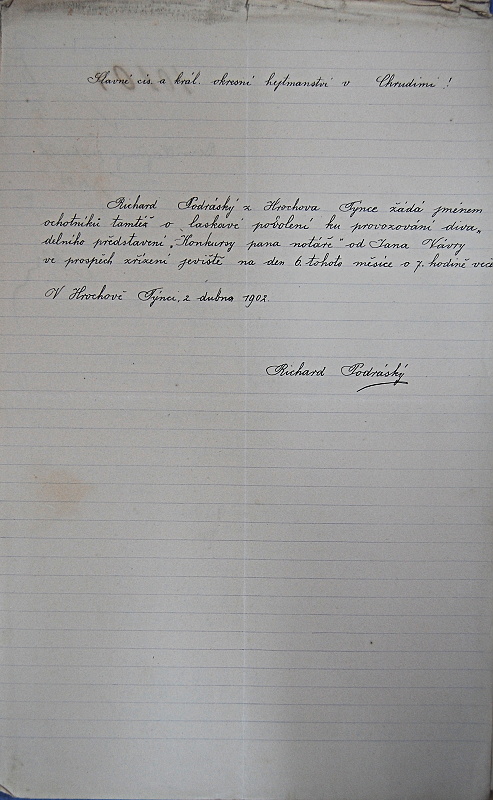 Slavné cís. a král. okresní hejtmanství v Chrudimi!
Richard Podráský z Hrochova Týnce žádá jménem
ochotníků tamtéž o laskavé povolení ku provozování diva„
delního představení „Konkursy pana notáře“ od Jana Vávry
ve prospěch zřízení jeviště na den 6. tohoto měsíce o 7. hodině veče
V Hrochově Týnci, 2. dubna 1902.
Richard Podráský